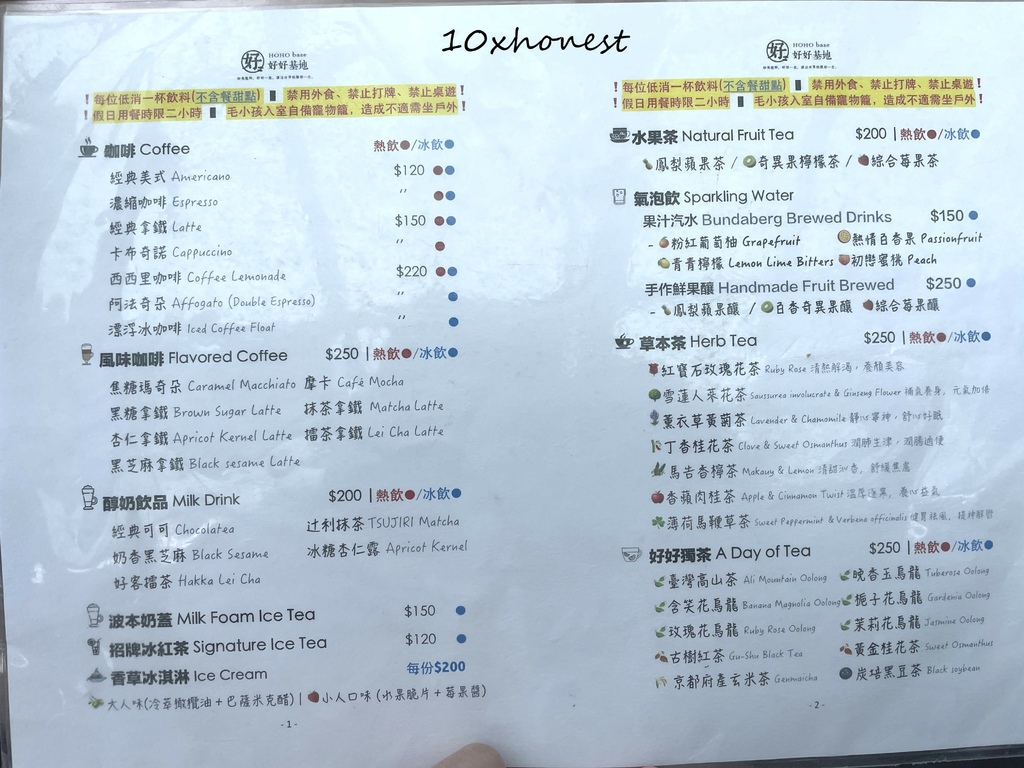 10xhonest
好 HOHO base
好好基地
！每位低消一杯飲料(不含餐甜點) 禁用外食、禁止打牌、禁止桌遊！
！假日用餐時限二小時 毛小孩入室自備寵物籠，造成不適需坐戶外！
咖啡 Coffee 熱飲/冰飲
經典美式 Americano $120
濃縮咖啡 Espresso 〃
經典拿鐵 Latte $150
卡布奇諾 Cappuccino 〃
西西里咖啡 Coffee Lemonade $220
阿法奇朵 Affogato (Double Espresso) 〃
漂浮冰咖啡 Iced Coffee Float 〃
風味咖啡 Flavored Coffee $250 | 熱飲/冰飲
焦糖瑪奇朵 Caramel Macchiato 摩卡 Café Mocha
黑糖拿鐵 Brown Sugar Latte 抹茶拿鐵 Matcha Latte
杏仁拿鐵 Apricot Kernel Latte 擂茶拿鐵 Lei Cha Latte
黑芝麻拿鐵 Black sesame Latte
醇奶飲品 Milk Drink $200 | 熱飲/冰飲
經典可可 Chocolatea 辻利抹茶 TSUJIRI Matcha
奶香黑芝麻 Black Sesame 冰糖杏仁露 Apricot Kernel
好客擂茶 Hakka Lei Cha
波本奶蓋 Milk Foam Ice Tea $150
招牌冰紅茶 Signature Ice Tea $120
香草冰淇淋 Ice Cream 每份$200
大人味(冷萃橄欖油+巴薩米克醋) | 小人口味 (水果脆片+莓果醬)
-1-
好 HOHO base
好好基地
！每位低消一杯飲料(不含餐甜點) 禁用外食、禁止打牌、禁止桌遊！
！假日用餐時限二小時 毛小孩入室自備寵物籠，造成不適需坐戶外！
水果茶 Natural Fruit Tea $200 | 熱飲/冰飲
鳳梨蘋果茶 / 奇異果檸檬茶 / 綜合莓果茶
氣泡飲 Sparkling Water
果汁汽水 Bundaberg Brewed Drinks $150
- 粉紅葡萄柚 Grapefruit 熱情百香果 Passionfruit
青青檸檬 Lemon Lime Bitters 初戀蜜桃 Peach
手作鮮果釀 Handmade Fruit Brewed $250
- 鳳梨蘋果釀 / 百香奇異果釀 綜合莓果釀
草本茶 Herb Tea $250 | 熱飲/冰飲
紅寶石玫瑰花茶 Ruby Rose 清熱解渴，養顏美容
雪蓮人蔘花茶 Saussurea involucrata & Ginseng Flower 補氣養身，元氣加倍
薰衣草黃菊茶 Lavender & Chamomile 靜心寧神，舒心好眠
丁香桂花茶 Clove & Sweet Osmanthus 潤肺生津，潤腸通便
馬告香檸茶 Makauy & Lemon 清甜沁香，舒緩焦慮
香蘋肉桂茶 Apple & Cinnamon Twist 溫厚逐寒，養心益氣
薄荷馬鞭草茶 Sweet Peppermint & Verbena officinalis 健胃祛風，提神解鬱
好好獨茶 A Day of Tea $250 | 熱飲/冰飲
臺灣高山茶 Ali Mountain Oolong 晚香玉烏龍 Tuberose Oolong
含笑花烏龍 Banana Magnolia Oolong 梔子花烏龍 Gardenia Oolong
玫瑰花烏龍 Ruby Rose Oolong 茉莉花烏龍 Jasmine Oolong
古樹紅茶 Gu-Shu Black Tea 黃金桂花茶 Sweet Osmanthus
京都府產玄米茶 Genmaicha 炭焙黑豆茶 Black soybean
-2-